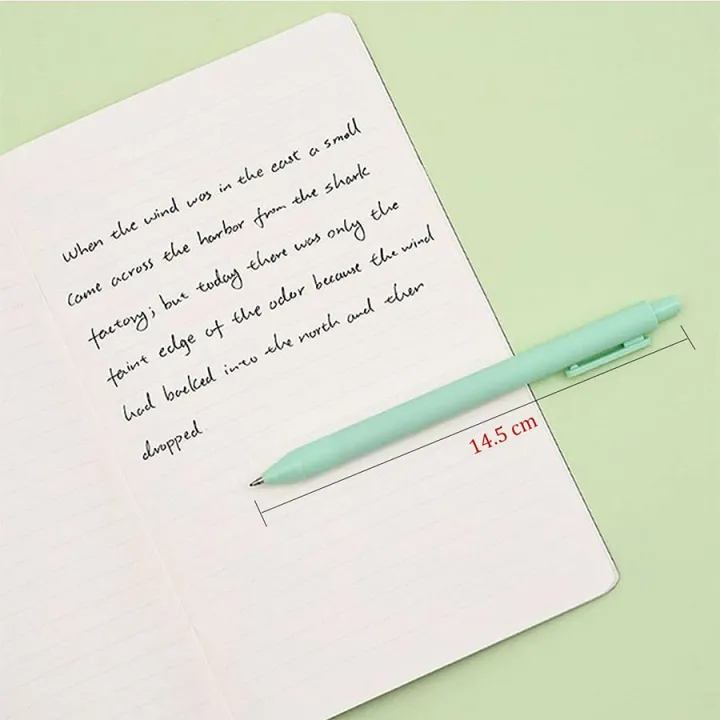 When the wind was in the east a smell
came across the harbor from the shark
factory; but today there was only the
faint edge of the odor because the wind
had backed into the north and then
dropped
14.5 cm